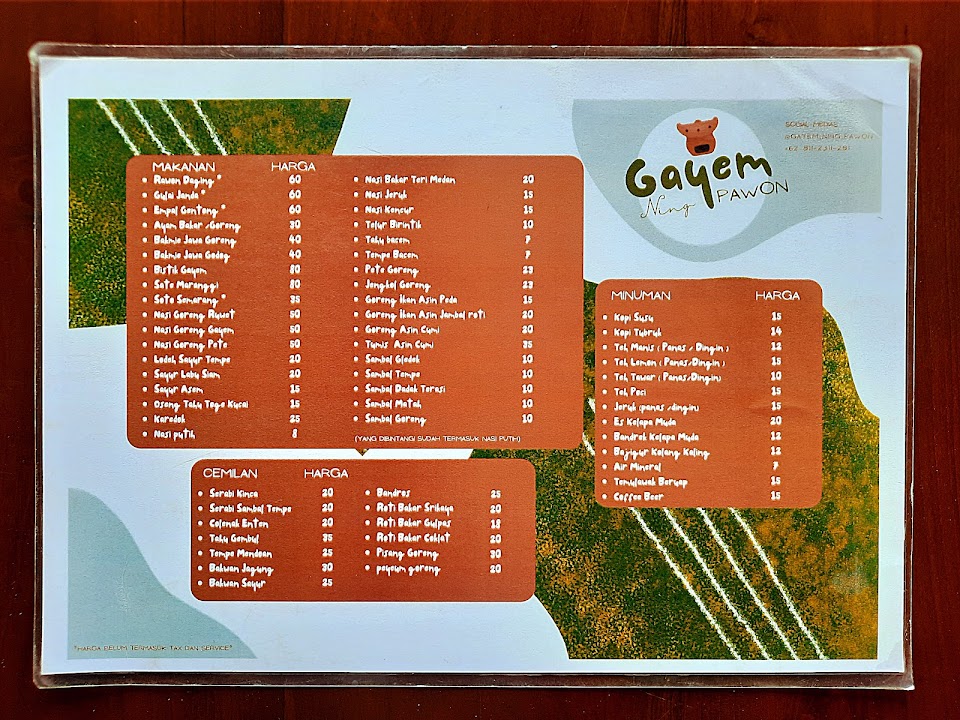 Gayem
Ning PAWON
SOCIAL MEDIA:
@GAYEM.NING.PAWON
MAKANAN HARGA
Rawon Daging * 60
Gulai Janda * 60
Empal Gentong * 60
Ayam Bakar /Goreng 30
Bakmie Jawa Goreng 40
Bakmie Jawa Godog 40
Bistik Gayem 80
Sate Maranggi 80
Soto Semarang * 35
Nasi Goreng Ruwet 50
Nasi Goreng Gayem 50
Nasi Goreng Pete 50
Lodeh Sayur Tempe 20
Sayur Labu Siam 20
Sayur Asem 15
Oseng Tahu Toge Kucai 15
Karedok 25
Nasi putih 8
Nasi Bakar Teri Medan 20
Nasi Jeruk 15
Nasi Kencur 15
Telur Birintik 10
Tahu bacem 7
Tempe Bacem 7
Pete Goreng 23
Jengkol Goreng 23
Goreng Ikan Asin Peda 15
Goreng Ikan Asin Jambal roti 20
Goreng Asin Cumi 30
Tumis Asin Cumi 35
Sambal Gledek 10
Sambal Tempe 10
Sambal Dadak Terasi 10
Sambal Matah 10
Sambal Goreng 10
(YANG DIBINTANGI SUDAH TERMASUK NASI PUTIH)
MINUMAN HARGA
Kopi Susu 15
Kopi Tubruk 14
Teh Manis ( Panas / Dingin ) 12
Teh Lemon ( Panas/Dingin ) 15
Teh Tawar ( Panas/Dingin) 10
Teh Poci 15
Jeruk (panas /dingin) 15
Es Kelapa Muda 20
Bandrek Kelapa Muda 12
Bajigur Kolang Kaling 12
Air Mineral 7
Temulawak Beryap 15
Coffee Beer 15
CEMILAN HARGA
Serabi Kinca 20
Serabi Sambal Tempe 20
Colenak Enten 20
Tahu Gembul 35
Tempe Mendoan 25
Bakwan Jagung 30
Bakwan Sayur 25
Bandros 25
Roti Bakar Srikaya 20
Roti Bakar Gulpas 18
Roti Bakar Coklat 20
Pisang Goreng 30
peuyeum goreng 20
*HARGA BELUM TERMASUK TAX DAN SERVICE*